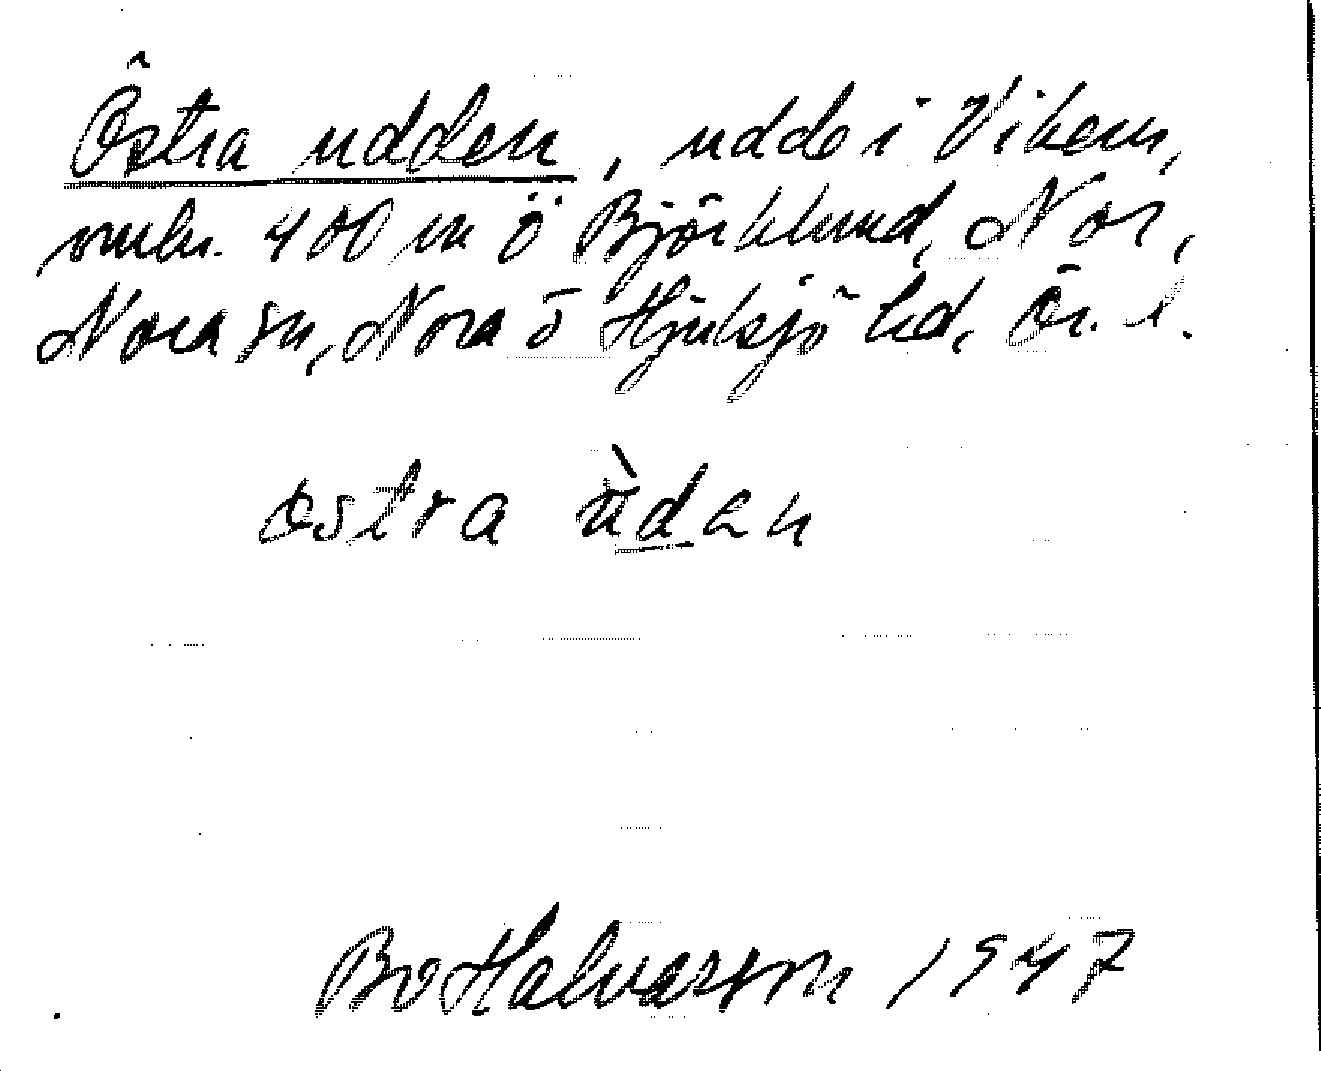 Östra udden, udde i Viken,
omkr. 400 m ö Björklund, Nor,
Nora sn, Nora o Hjulsjö hd, Ör. l.
östra ùdan
Bo Halvarson 1947